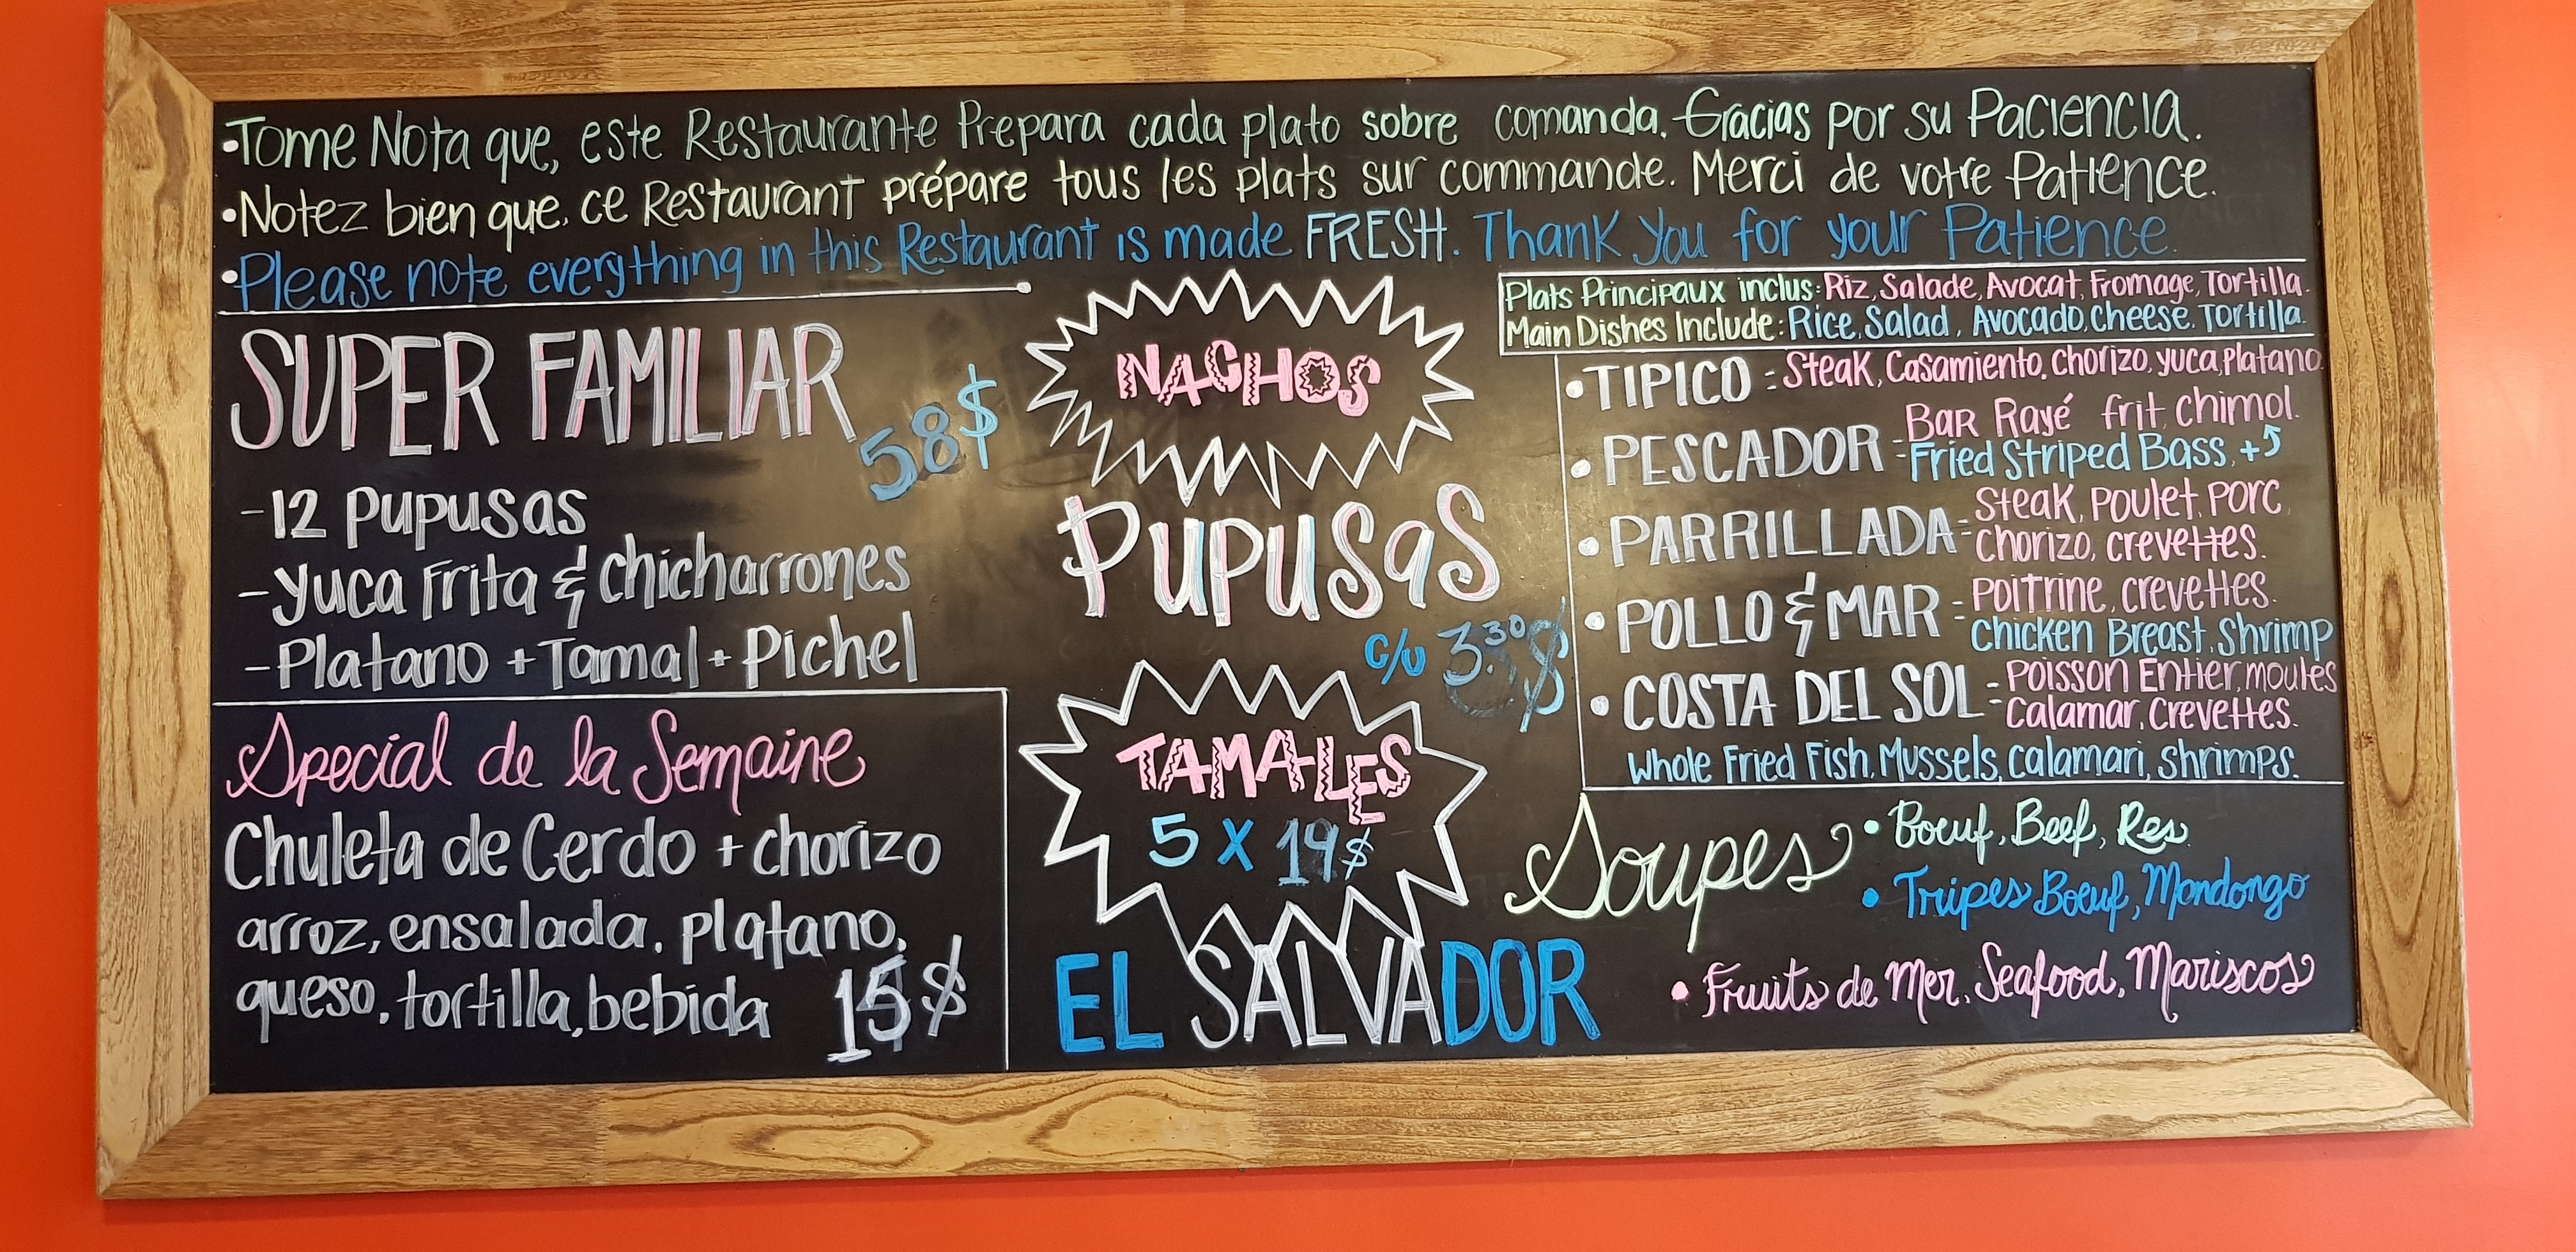 •Tome Nota que, este Restaurante Prepara cada plato sobre comanda. Gracias por su Paciencia.
•Notez bien que, ce Restaurant prépare tous les plats sur commande. Merci de votre Patience.
•Please note everything in this Restaurant is made FRESH. Thank You for your Patience.
SUPER FAMILIAR
58$
-12 pupusas
-Yuca Frita & chicharrones
-Platano + Tamal + Pichel
Special de la Semaine
Chuleta de Cerdo + chorizo
arroz, ensalada, platano,
queso, tortilla, bebida 15$
NACHOS
PUPUSAS
c/u 3.30$
TAMALES
5 X 19$
EL SALVADOR
Plats Principaux inclus: Riz, Salade, Avocat, Fromage, Tortilla.
Main Dishes Include: Rice, Salad, Avocado, Cheese, Tortilla.
•TIPICO - Steak, Casamiento, chorizo, yuca, platano.
•PESCADOR - Bar Rayé frit, chimol.
Fried Striped Bass, +
•PARRILLADA - Steak, Poulet, Porc,
chorizo, crevettes.
•POLLO & MAR - Poitrine, crevettes.
Chicken Breast, Shrimp
•COSTA DEL SOL - Poisson Entier, moules
Calamar, Crevettes.
Whole Fried Fish, Mussels, Calamari, Shrimps.
Soupes
•Boeuf, Beef, Res.
•Tripes Boeuf, Mondongo
•Fruits de Mer, Seafood, Mariscos